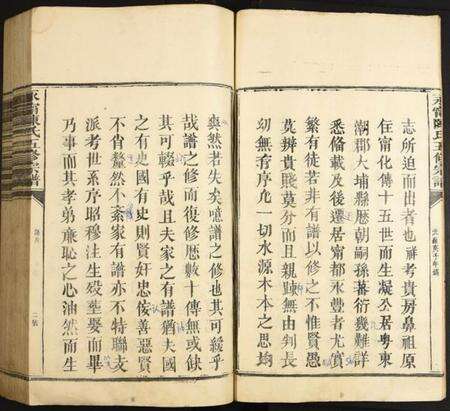 永甯陳氏五修宗譜
志所迫而出者也稱考貴房鼻祖原
住甯化傳十五世而生凝公居粵東
潮郡大埔縣歷朝嗣孫蕃衍幾難詳
悉備載及後遷居甯都永豐者尤實
繁有徒若非有譜以修之不惟賢愚
莫辨貴賤莫分而且親疎無由判長
幼無着序允一切水源木本之思均
爽然若失矣噫譜之修也其可緩乎
哉譜之修而復修歷數十傳無或缺
其可輟乎哉且夫家之有譜猶夫國
之有史國有史則賢奸忠佞善惡賢
不肖釐然不紊家有譜亦不特聯支
派考世系序昭穆注生歿塋娶而畢
乃事而其孝弟廉恥之心油然而生
永甯陳氏五修宗譜